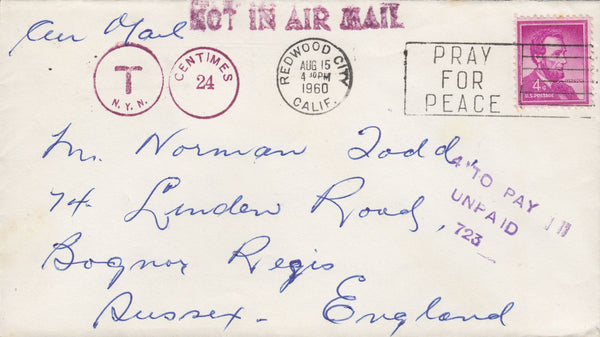 Air Mail
NOT IN AIR MAIL
T
N.Y.N.
CENTIMES
24
REDWOOD CITY
AUG 15
4 30PM
1960
CALIF.
PRAY
FOR
PEACE
4¢
U.S. POSTAGE
Mr. Norman Todd,
74 Linden Road,
Bognor Regis
Sussex - England
TO PAY
UNPAID
723